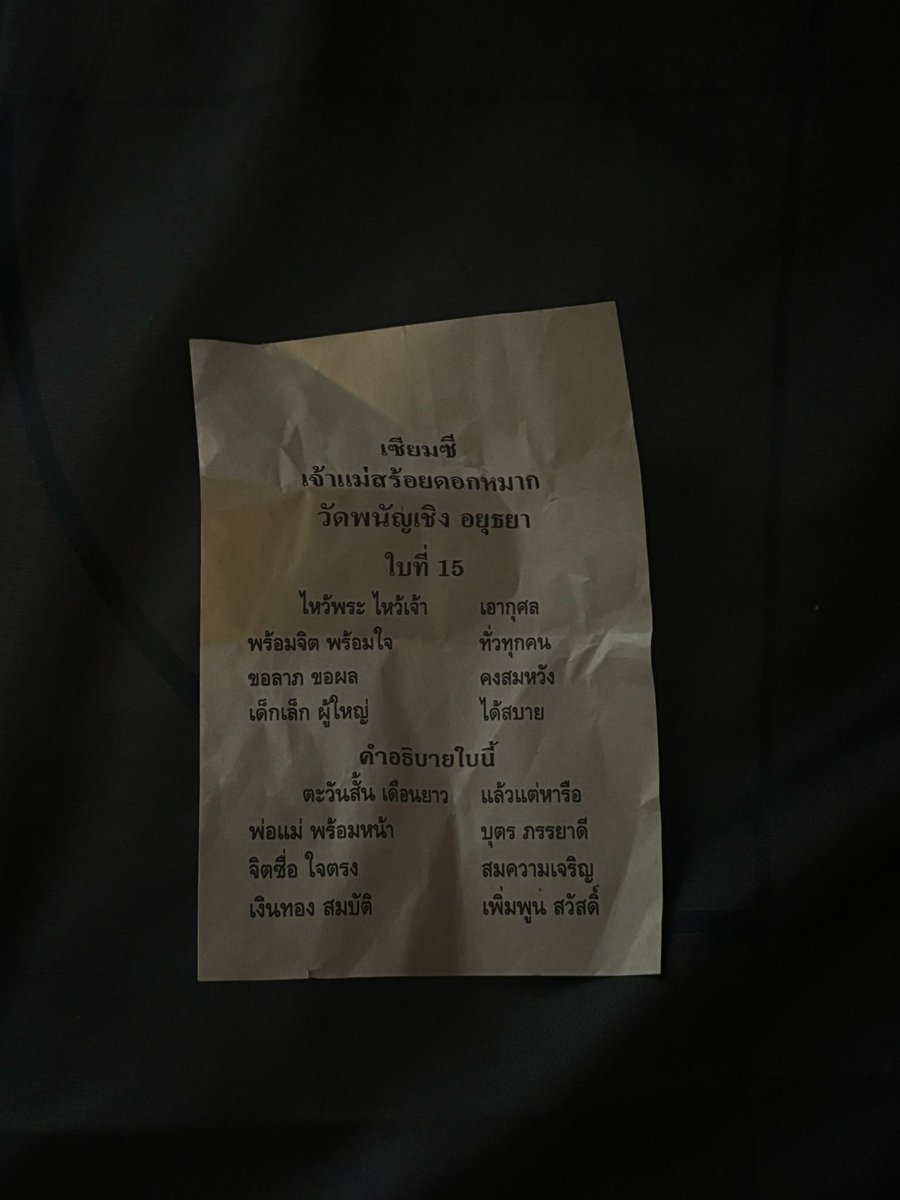 เซียมซี
เจ้าแม่สร้อยดอกหมาก
วัดพนัญเชิง อยุธยา
ใบที่ 15
ไหว้พระ ไหว้เจ้า เอากุศล
พร้อมจิต พร้อมใจ ทั่วทุกคน
ขอลาภ ขอผล คงสมหวัง
เด็กเล็ก ผู้ใหญ่ ได้สบาย
คำอธิบายใบนี้
ตะวันสั้น เดือนยาว แล้วแต่หารือ
พ่อแม่ พร้อมหน้า บุตร ภรรยาดี
จิตซื่อ ใจตรง สมความเจริญ
เงินทอง สมบัติ เพิ่มพูน สวัสดิ์